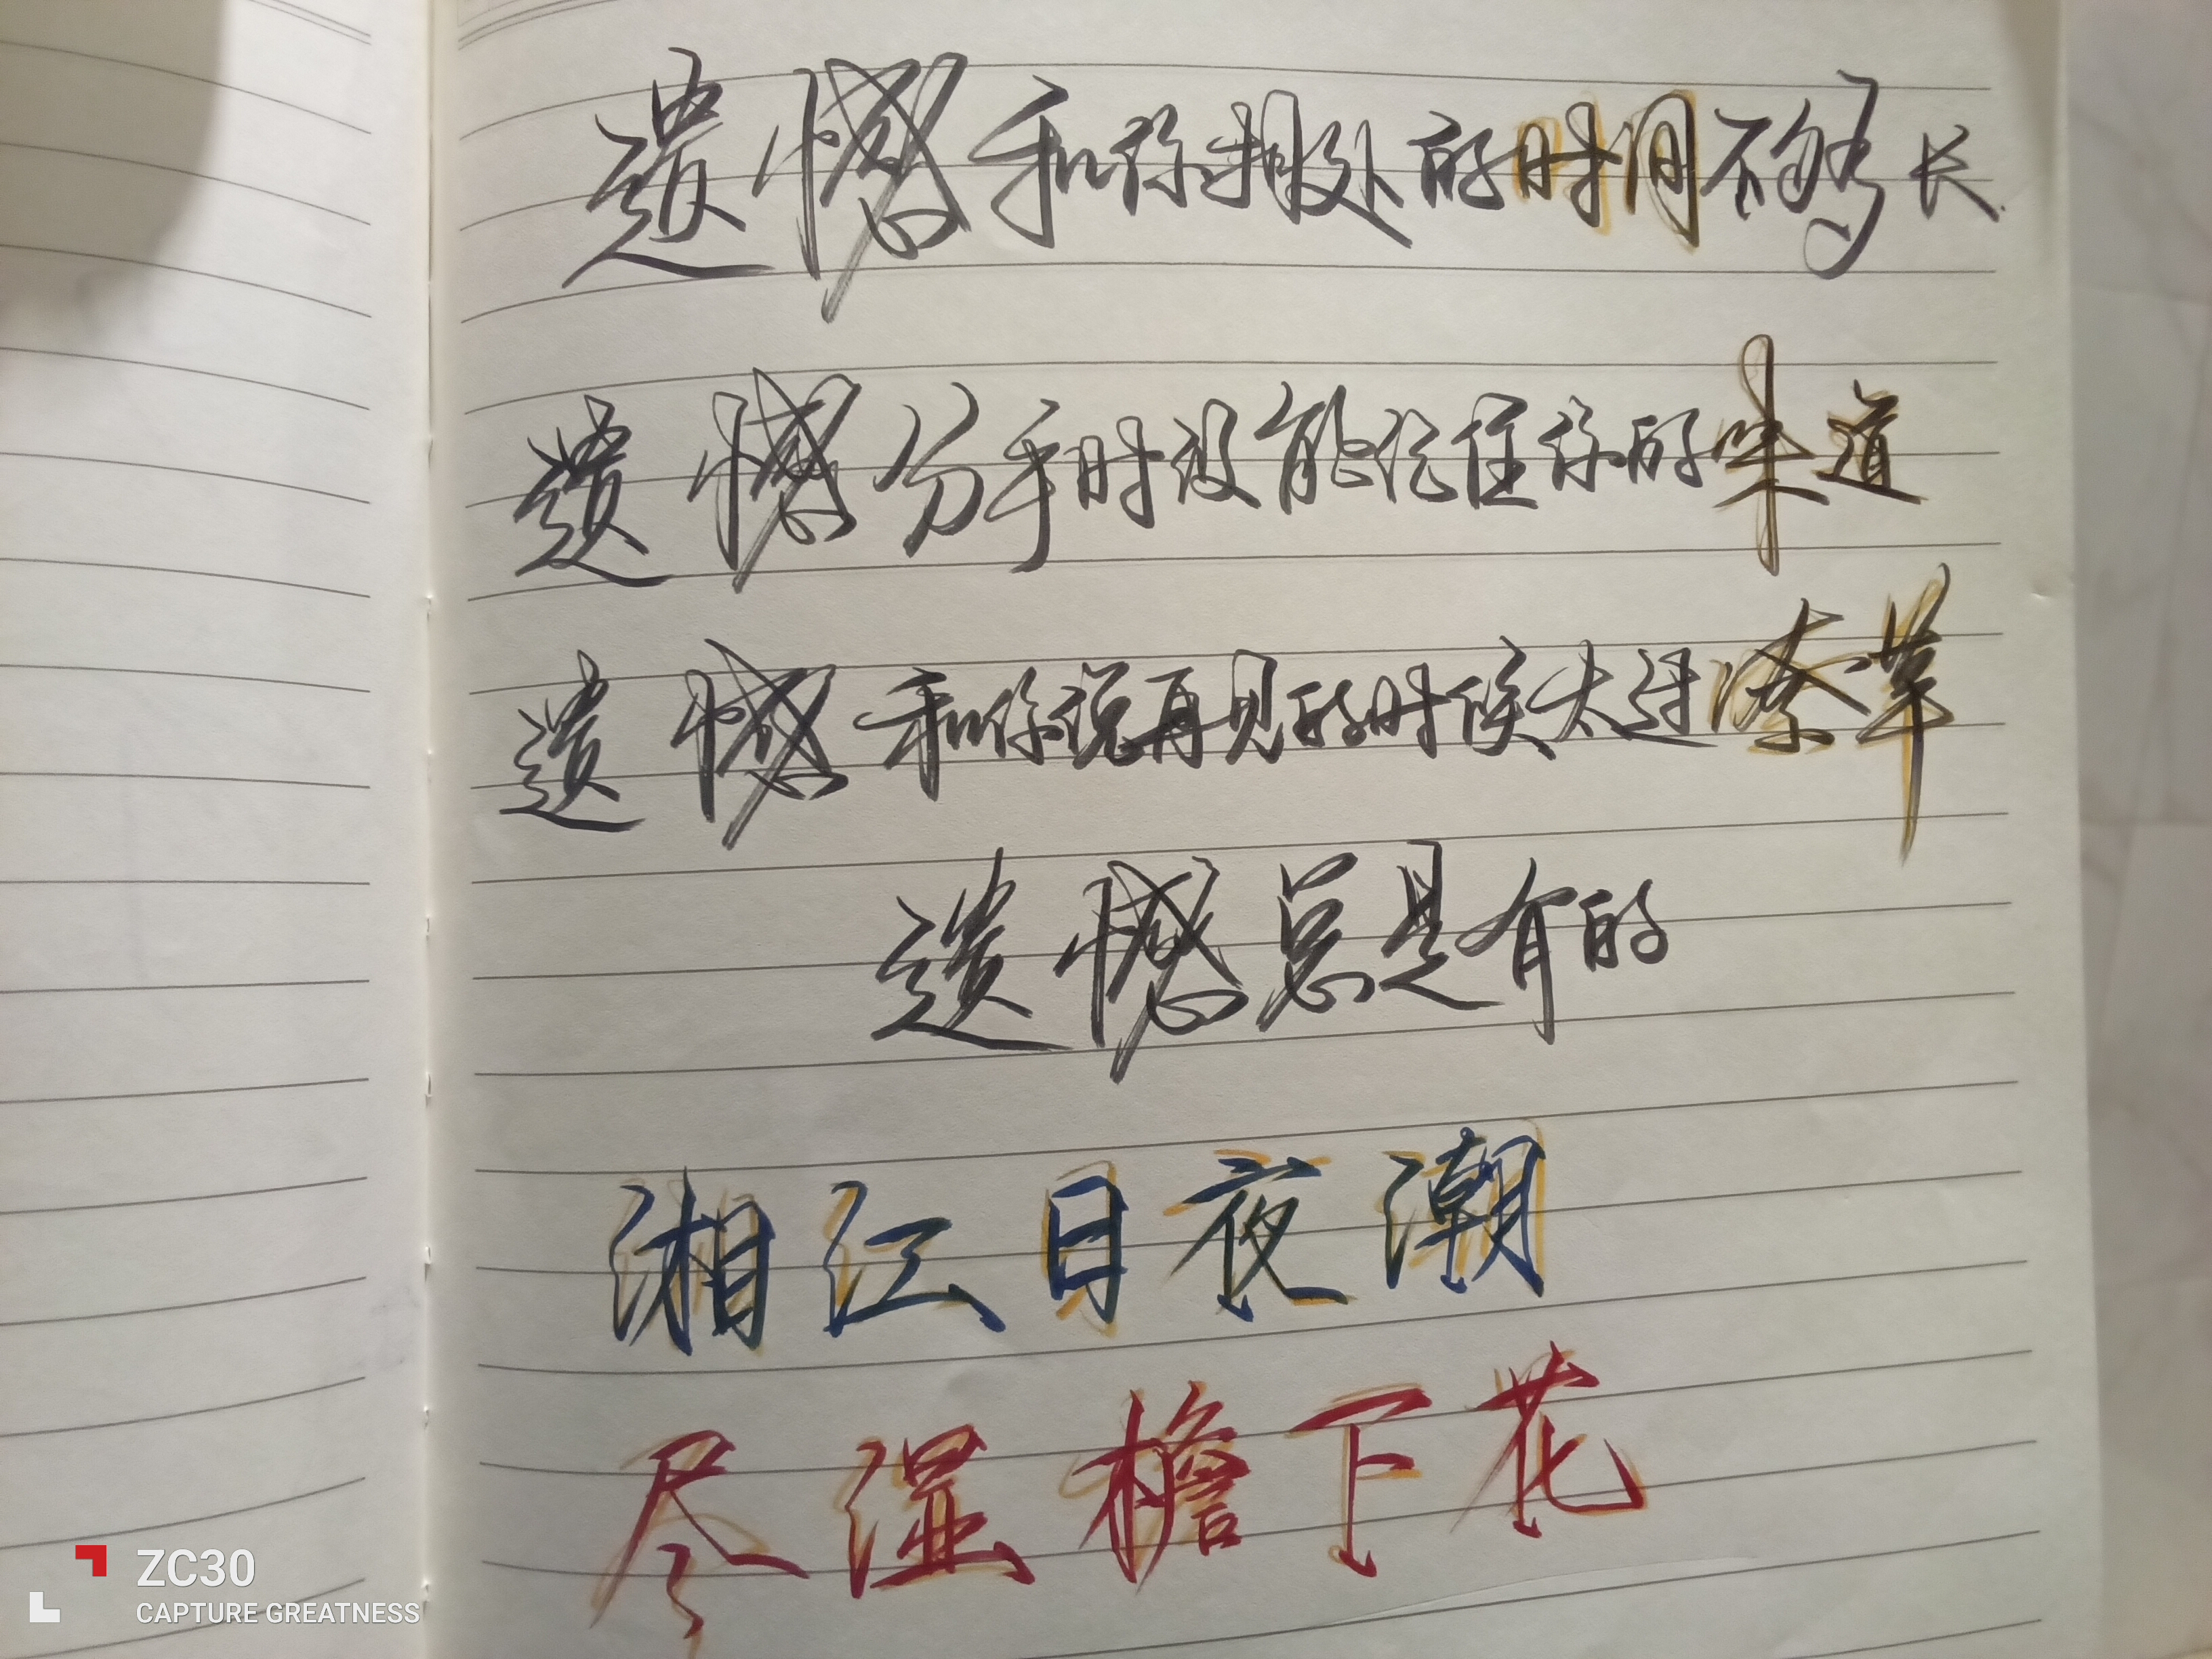 遗憾和你相处的时间不够长
遗憾分手时没能记住你的味道
遗憾和你说再见的时候太过潦草
遗憾总是有的
湘江日夜潮
尽湿檐下花
ZC30
CAPTURE GREATNESS